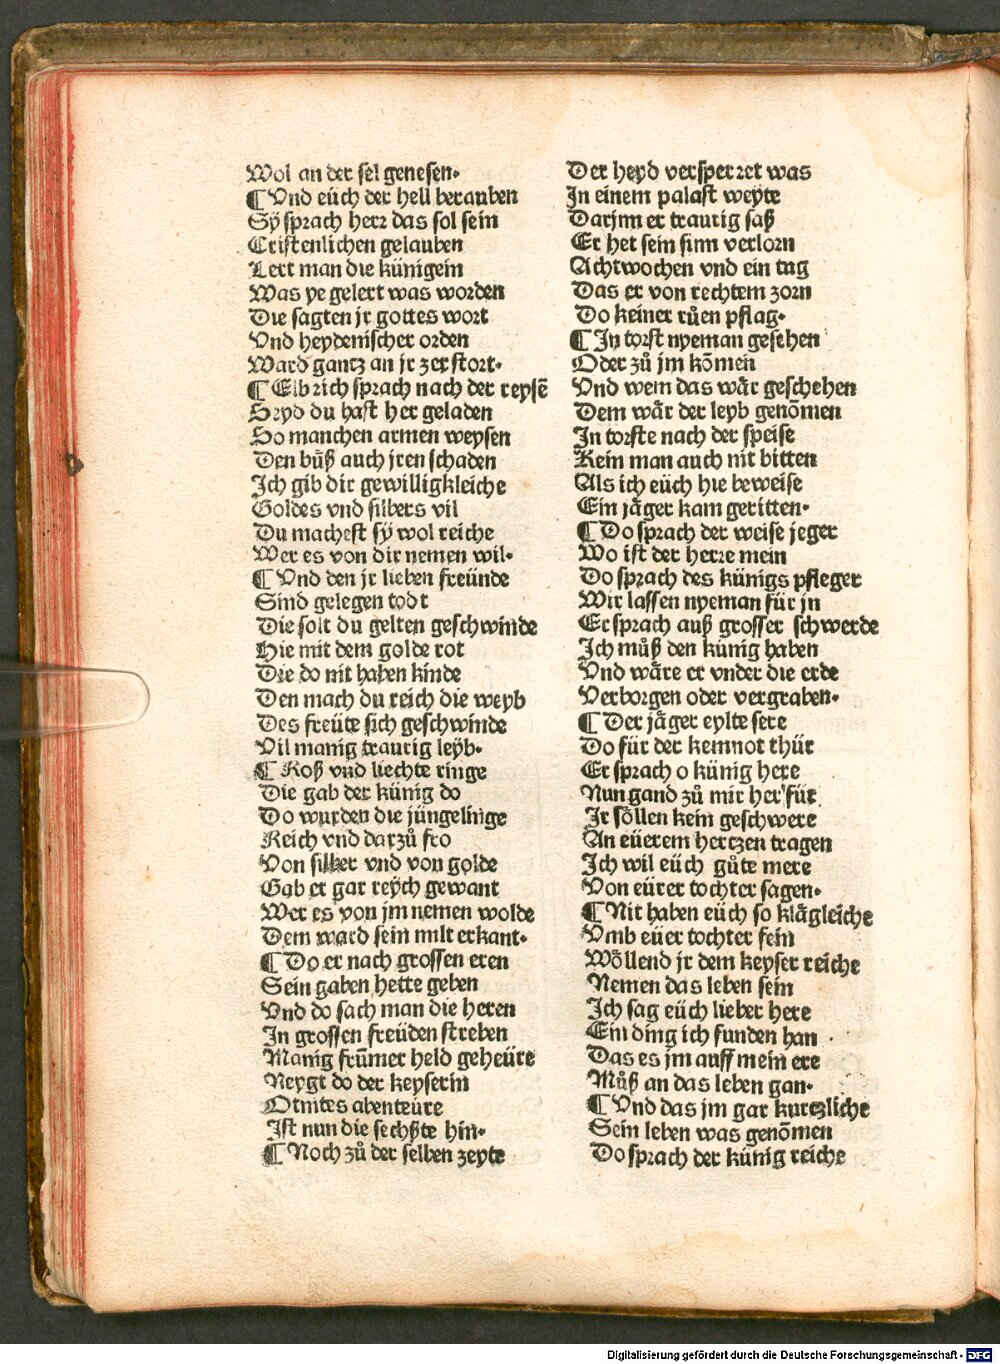 Wol an der sel genesen·
¶ Vnd eüch der hell berauben
Sÿ sprach herr das sol sein
Cristenlichen gelauben
Lert man die künigein
Was ye gelert was worden
Die sagten jr gottes wort
Vnd heydenischer orden
Ward gantz an jr zerstort·
¶ Elbrich sprach nach der reysē
Seyd du hast her geladen
So manchen armen weysen
Den bůß auch jren schaden
Ich gib dir gewilligkleiche
Goldes vnd silbers vil
Du machest sÿ wol reiche
Wer es von dir nemen wil·
¶ Vnd den jr lieben freünde
Sind gelegen todt
Die solt du gelten geschwinde
Hie mit dem golde rot
Die do nit haben kinde
Den mach du reich die weyb
Des freüte sich geschwinde
Vil manig traurig leÿb·
¶ Roß vnd liechte ringe
Die gab der künig do
Do wurden die jüngelinge
Reich vnd darzů fro
Von silber vnd von golde
Gab er gar reÿch gewant
Wer es von jm nemen wolde
Dem ward sein milt erkant·
¶ Do er nach grossen eren
Sein gaben hette geben
Vnd do sach man die heren
In grossen freüden streben
Manig frümer held geheüre
Neygt do der keyserin
Otnites abenteüre
Ist nun die sechßte hin·
¶ Noch zů der selben zeyte
Der heyd versperret was
In einem palast weyte
Darjnn er traurig saß
Er het sein sinn verlorn
Achtwochen vnd ein tag
Das er von rechtem zorn
Do keiner růen pflag·
¶ In torst nyeman gesehen
Oder zů jm kōmen
Vnd wem das wär geschehen
Dem wär der leyb genōmen
In torste nach der speise
Kein man auch nit bitten
Als ich eüch hie beweise
Ein jäger kam geritten·
¶ Do sprach der weise jeger
Wo ist der herre mein
Do sprach des künigs pfleger
Wir lassen nyeman für jn
Er sprach auß grosser schwerde
Ich můß den künig haben
Vnd wäre er vnder die erde
Verborgen oder vergraben·
¶ Der jäger eylte sere
Do für der kemnot thür
Er sprach o künig here
Nun gand zů mir her für
Ir söllen kein geschwere
An eüerem hertzen tragen
Ich wil eüch gůte mere
Von eürer tochter sagen·
¶ Nit haben eüch so klägleiche
Vmb eüer tochter fein
Wöllend jr dem keyser reiche
Nemen das leben sein
Ich sag eüch lieber here
Ein ding ich funden han
Das es jm auff mein ere
Můß an das leben gan·
¶ Vnd das jm gar kurtzliche
Sein leben was genōmen
Do sprach der künig reiche
Digitalisierung gefördert durch die Deutsche Forschungsgemeinschaft - DFG